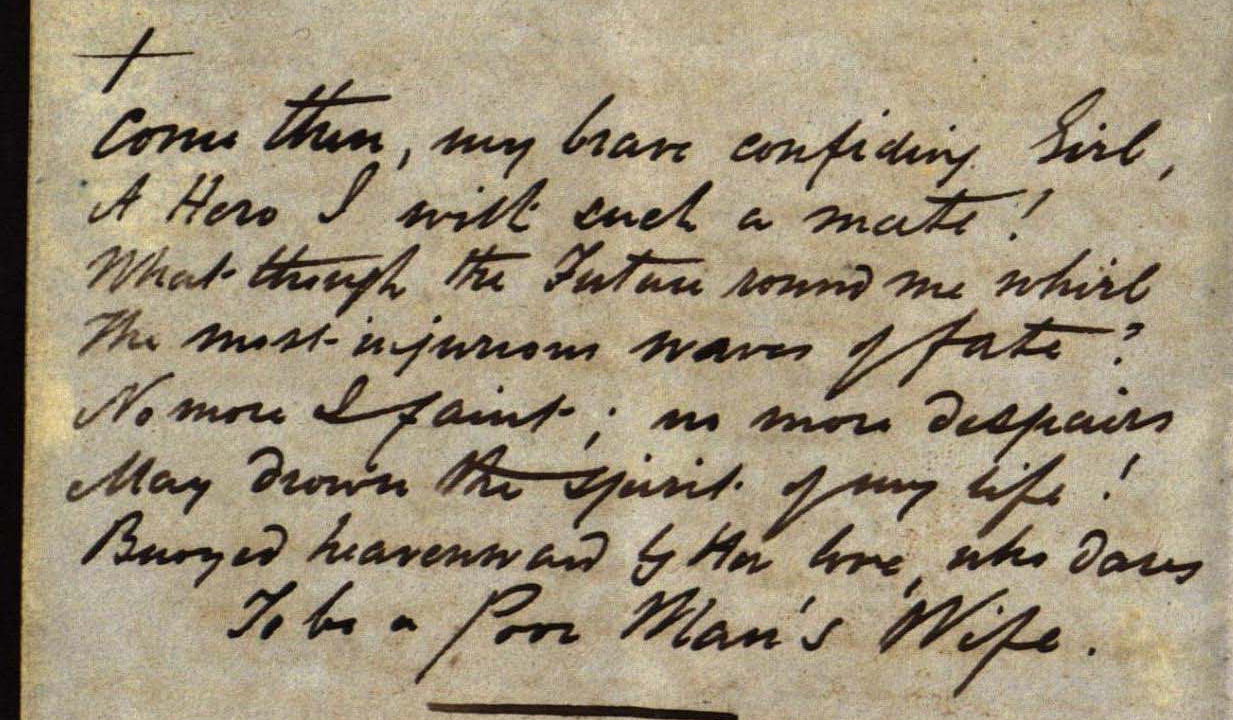 +
Come then, my brave confiding Girl,
A Hero I with such a mate!
What though the Future round me whirl
The most injurious waves of fate?
No more I faint; no more despairs
May drown the spirit of my life!
Buoyed heavenward by Her love, who dares
To be a Poor Man's Wife.